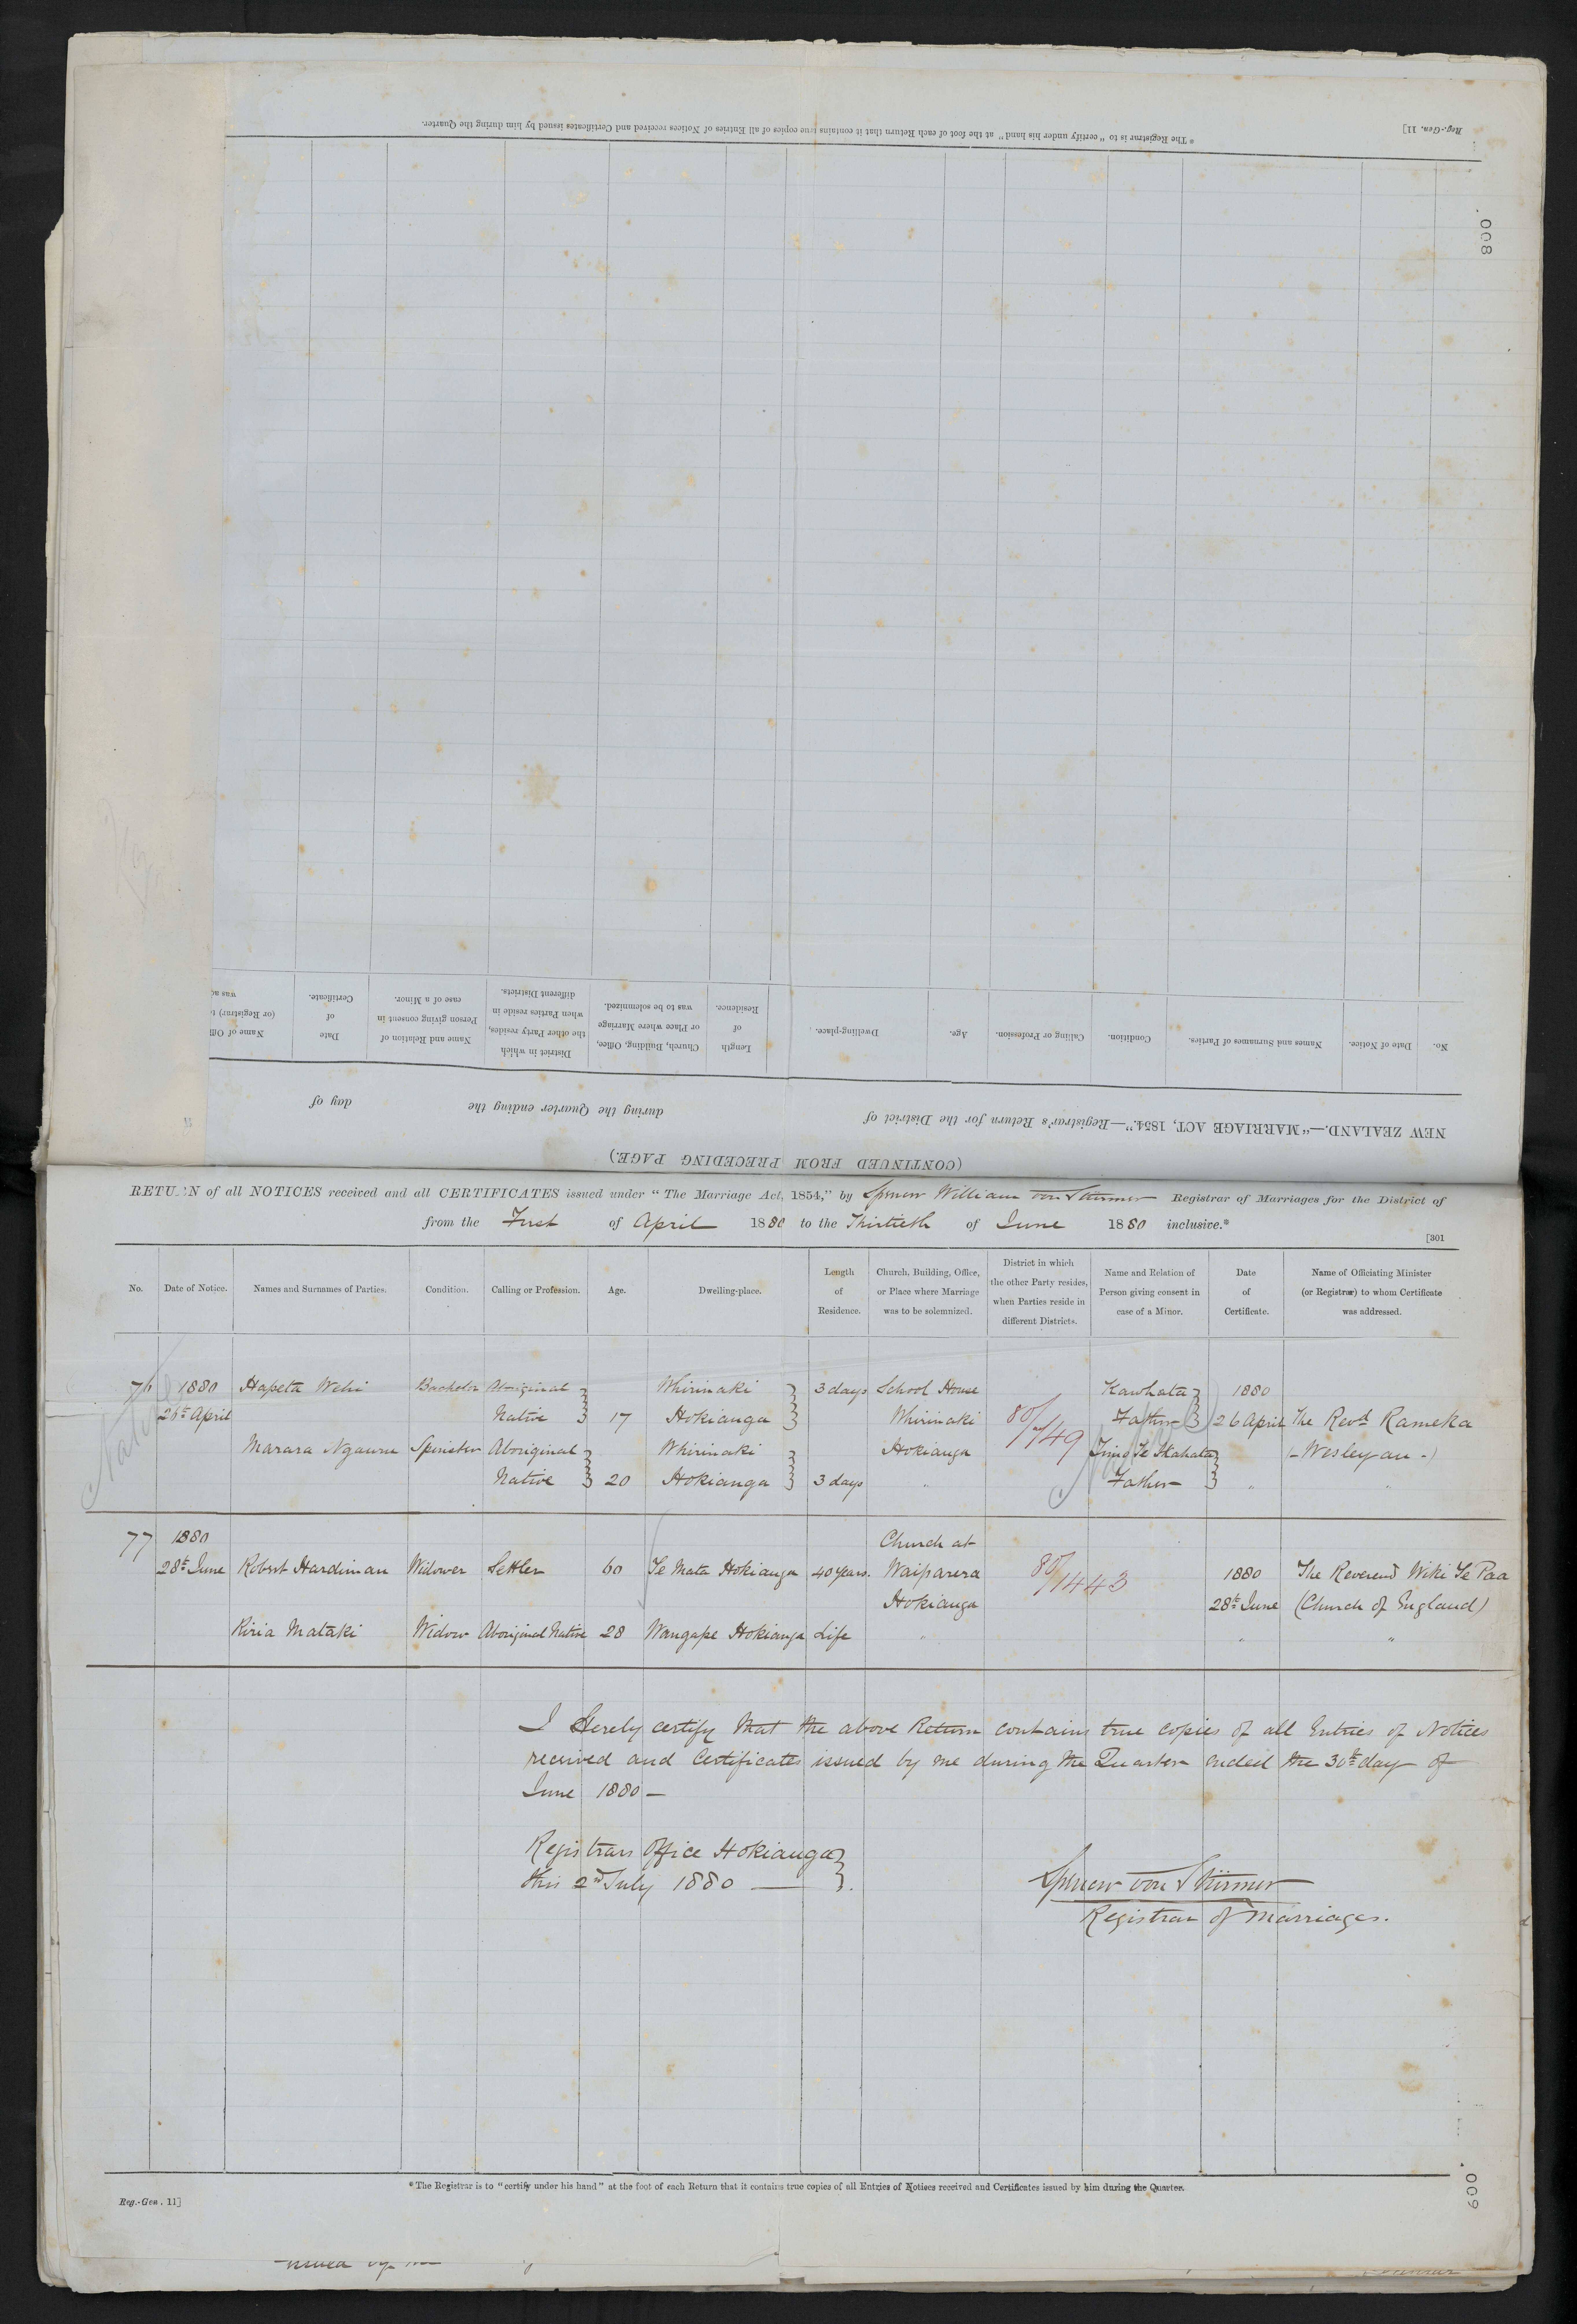 * The Registrar is to "certify under his hand" at the foot of each Return that it contains true copies of all Entries of Notices received and Certificates issued by him during the Quarter.
Reg.-Gen. 11]
008
(CONTINUED FROM PRECEDING PAGE.)
NEW ZEALAND.—"MARRIAGE ACT, 1854."—Registrar's Return for the District of during the Quarter ending the day of
No. Date of Notice. Names and Surnames of Parties. Condition. Calling or Profession. Age. Dwelling-place. Length of Residence. Church, Building, Office, or Place where Marriage was to be solemnized. District in which the other Party resides, when Parties reside in different Districts. Name and Relation of Person giving consent in case of a Minor. Date of Certificate. Name of Offi
(or Registrar) t
was ad
RETURN of all NOTICES received and all CERTIFICATES issued under "The Marriage Act, 1854," by Spencer William von Stürmer Registrar of Marriages for the District of
from the First of April 1880 to the Thirtieth of June 1880 inclusive.*
[301
No. Date of Notice. Names and Surnames of Parties. Condition. Calling or Profession. Age. Dwelling-place. Length of Residence. Church, Building, Office, or Place where Marriage was to be solemnized. District in which the other Party resides, when Parties reside in different Districts. Name and Relation of Person giving consent in case of a Minor. Date of Certificate. Name of Officiating Minister (or Registrar) to whom Certificate was addressed.
76 1880 Hapeta Wehi Bachelor Aboriginal Whirinaki 3 days School House Kawhata 1880
26th April Native 17 Hokianga Whirinaki 80/749 Father 26 April The Revd Rameka
Marara Ngauru Spinster Aboriginal Whirinaki Hokianga Te (-Wesleyan-)
Native 20 Hokianga 3 days " Father " "
Native
77 1880 Church at
28th June Robert Hardiman Widower Settler 60 Te Mata Hokianga 40 years. Waiparera 80/1443 1880 The Reverend Wiki Te Paa
Hokianga 28th June (Church of England)
Kiria Mataki Widow Aboriginal Native 28 Wangape Hokianga Life " " "
I Hereby certify that the above Return contains true copies of all Entries of Notices
received and Certificates issued by me during the Quarter ended the 30th day of
June 1880 —
Registrars Office Hokianga
this 2nd July 1880 —
Spencer von Stürmer
Registrar of Marriages.
* The Registrar is to "certify under his hand" at the foot of each Return that it contains true copies of all Entries of Notices received and Certificates issued by him during the Quarter.
Reg.-Gen. 11]
009